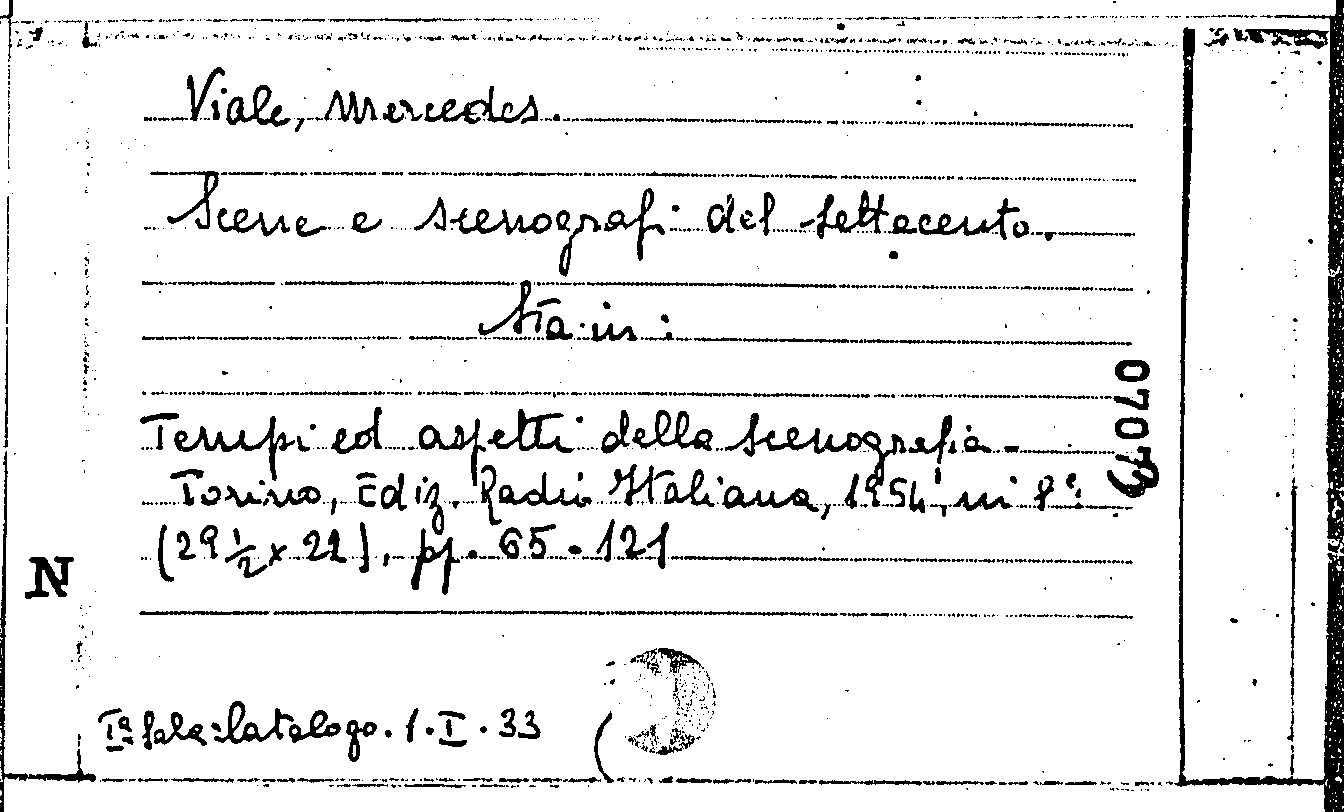 Viale, Mercedes.
Scene e scenografi del settecento.
Sta in :
Tempi ed aspetti della scenografia -
Torino, Ediz. Radio Italiana, 1954, in 8º:
(29 ½ x 22), pp. 65 - 121
07073
N
Iª Sala: Catalogo. 1. I. 33